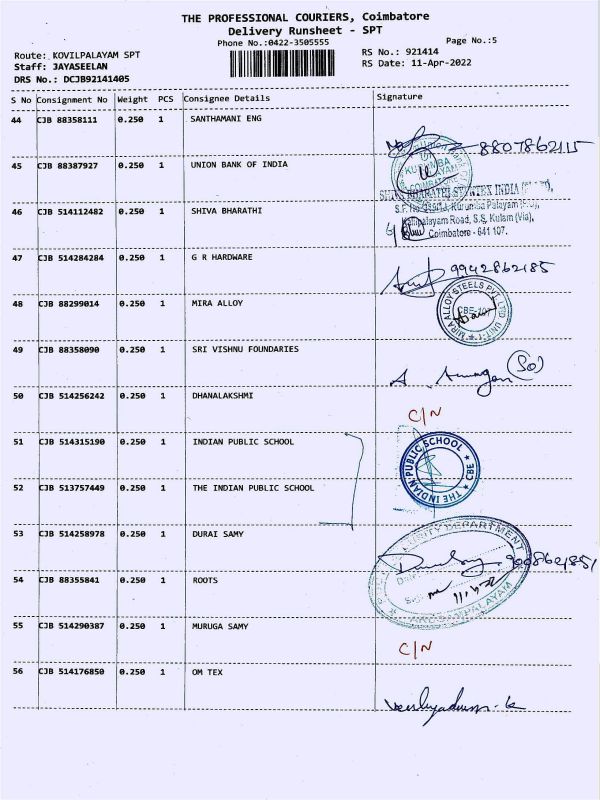 THE PROFESSIONAL COURIERS, Coimbatore
Delivery Runsheet - SPT
Phone No.:0422-3505555
Page No.:5
Route: KOVILPALAYAM SPT
RS No.: 921414
Staff: JAYASEELAN
RS Date: 11-Apr-2022
DRS No.: DCJB92141405
S No Consignment No Weight PCS Consignee Details Signature
44 CJB 88358111 0.250 1 SANTHAMANI ENG
8807862115
45 CJB 88387927 0.250 1 UNION BANK OF INDIA
46 CJB 514112482 0.250 1 SHIVA BHARATHI
Coimbatore - 641 107.
47 CJB 514284284 0.250 1 G R HARDWARE
9942862185
48 CJB 88299014 0.250 1 MIRA ALLOY
MIRA ALLOY STEELS PVT LTD UNIT-1
49 CJB 88358090 0.250 1 SRI VISHNU FOUNDARIES
50 CJB 514256242 0.250 1 DHANALAKSHMI
C/N
51 CJB 514315190 0.250 1 INDIAN PUBLIC SCHOOL
THE INDIAN PUBLIC SCHOOL
CBE
52 CJB 513757449 0.250 1 THE INDIAN PUBLIC SCHOOL
53 CJB 514258978 0.250 1 DURAI SAMY
54 CJB 88355841 0.250 1 ROOTS
55 CJB 514290387 0.250 1 MURUGA SAMY
C/N
56 CJB 514176850 0.250 1 OM TEX